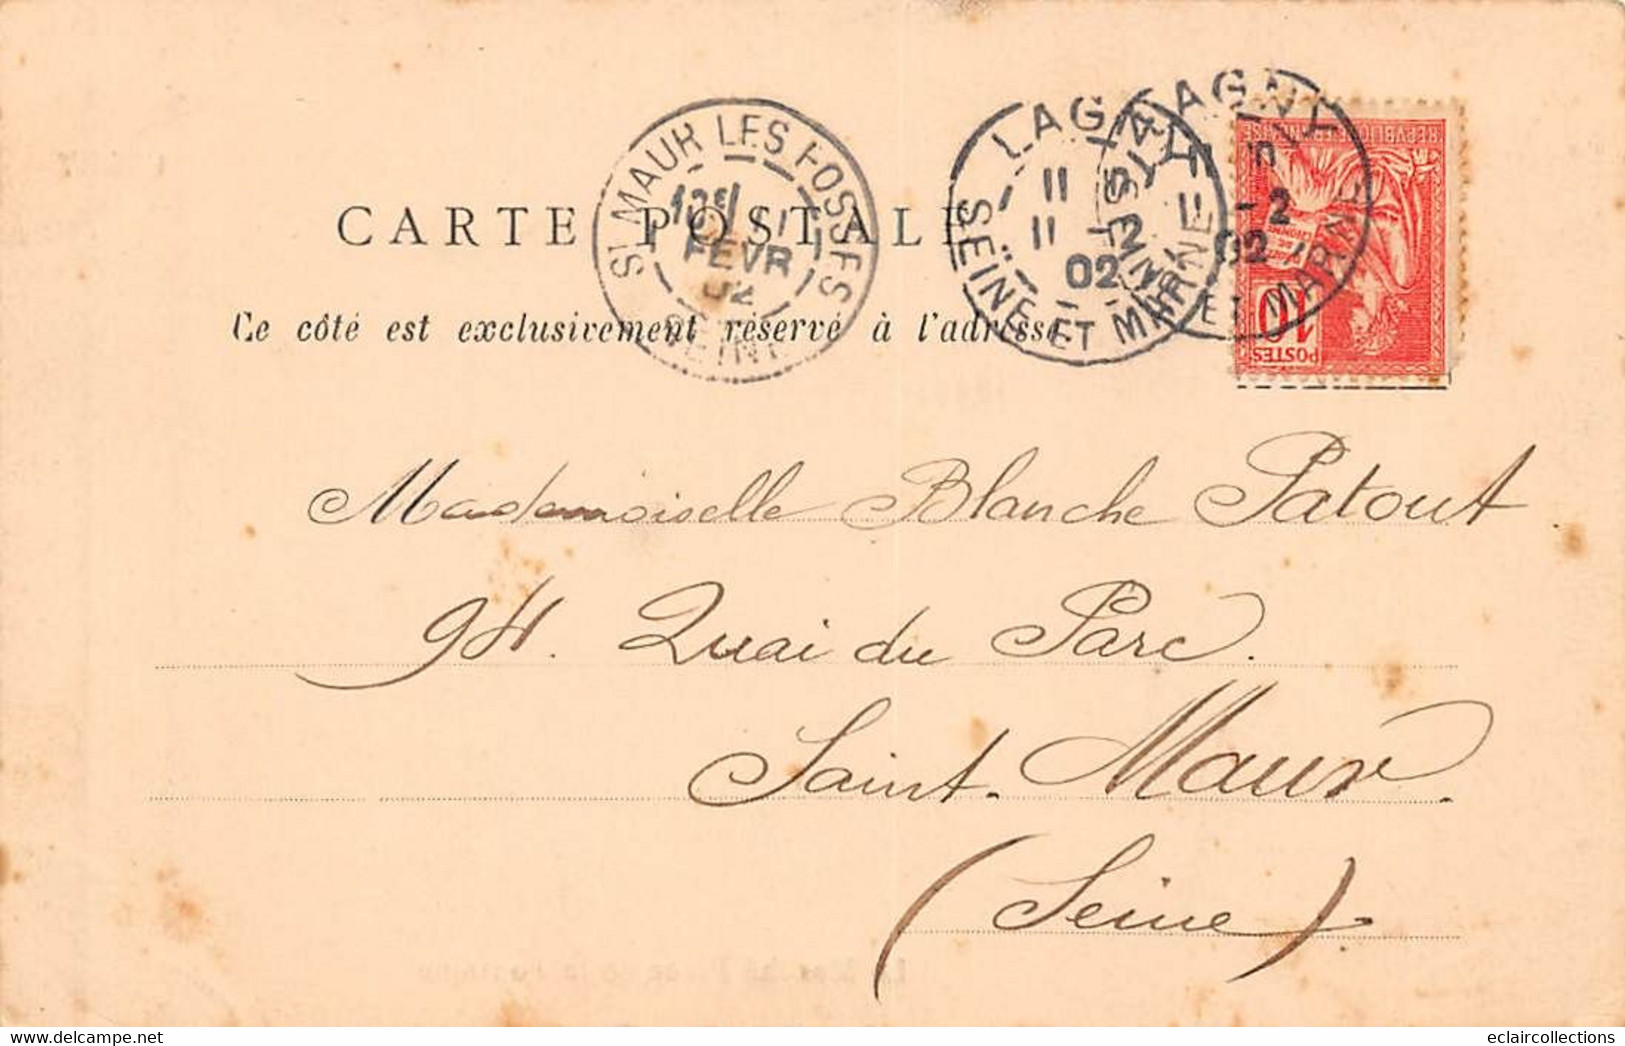 CARTE POSTALE
Ce côté est exclusivement réservé à l'adresse
ST MAUR LES FOSSES
11
FEVR
02
SEINE
LAGNY
11
11 2
02
SEINE ET MARNE
LAGNY
-2
02
SEINE ET MARNE
REPUBLIQUE FRANÇAISE
10
POSTES
Mademoiselle Blanche Patout
94. Quai du Parc.
Saint-Maur.
(Seine).
www.delcampe.net
eclaircollections